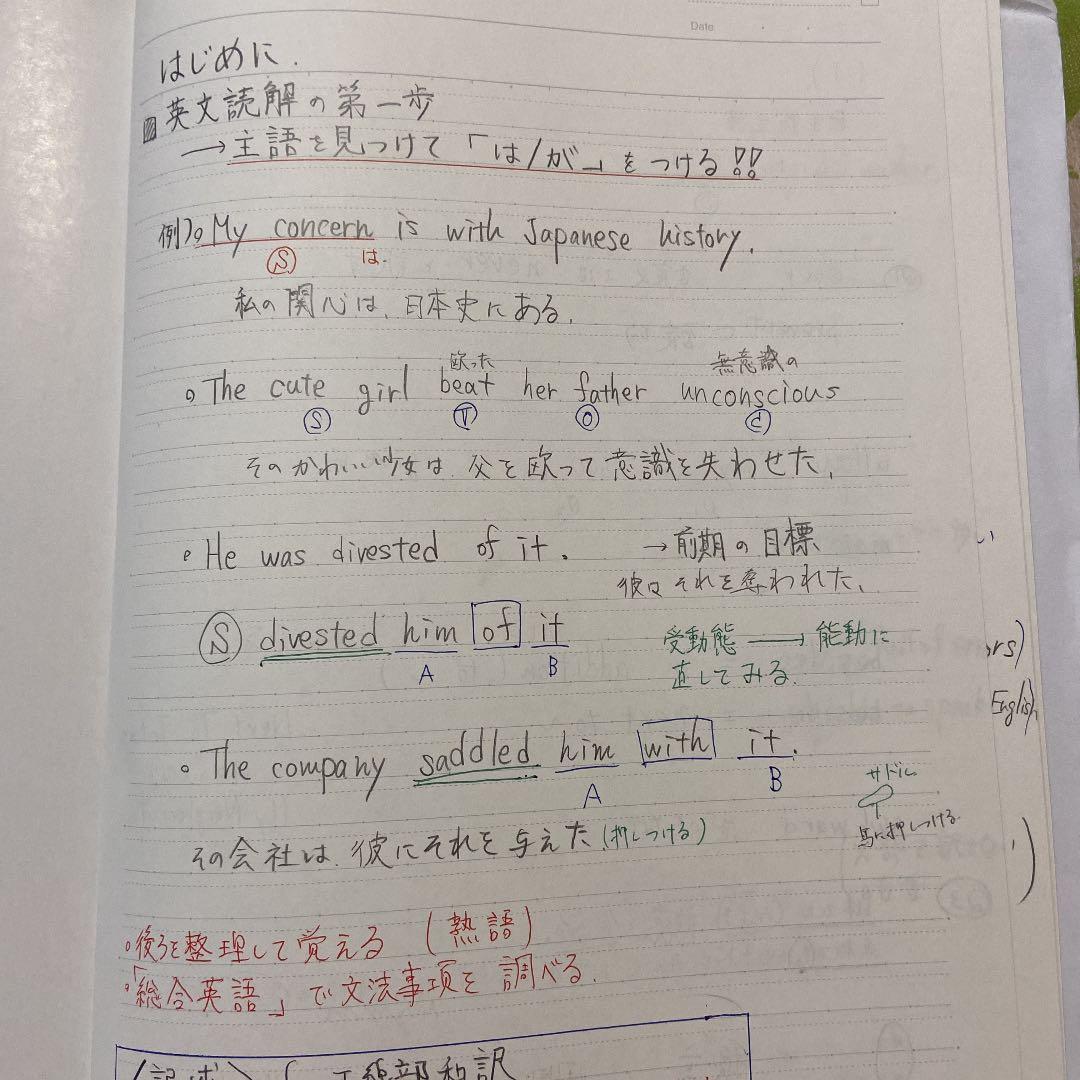 Date
はじめに.
英文読解の第一歩
→主語を見つけて「は/が」をつける!!
例)。My concern is with Japanese history.
Ⓢ は.
私の関心は、日本史にある。
殴った 無意識の
。The cute girl beat her father unconscious
Ⓢ Ⓥ Ⓞ Ⓒ
そのかわいい少女は、父を殴って意識を失わせた。
。He was divested of it. →前期の目標
彼はそれを奪われた。
Ⓢ divested him of it 受動態→能動に
A B 直してみる.
。The company saddled him with it.
A B サドル
馬に押しつける
その会社は、彼にそれを与えた(押しつける)
。後ろを整理して覚える (熟語)
。「総合英語」で文法事項を調べる.
rs)
English